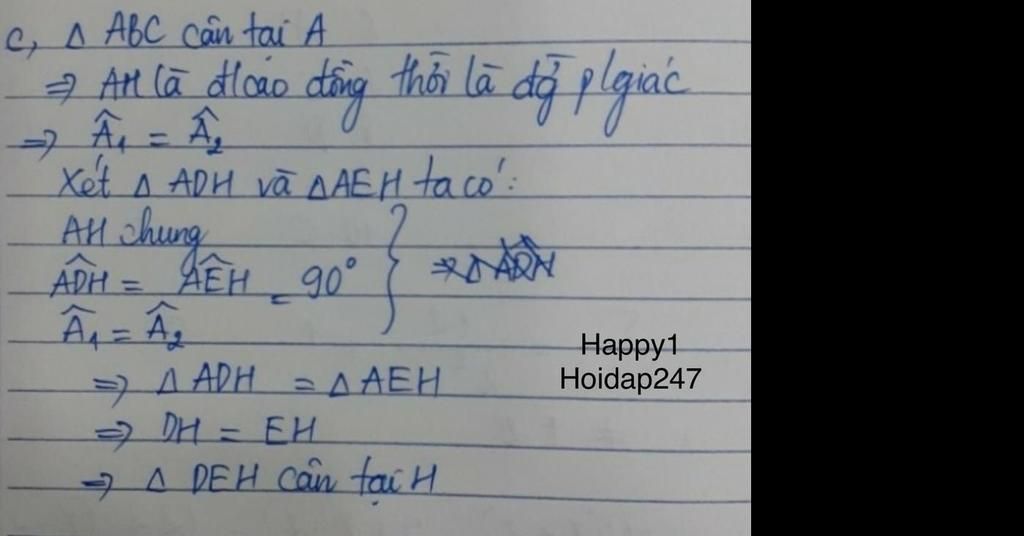 c, Δ ABC cân tại A
⇒ AH là đ/cao đồng thời là đg̉ p/giác
⇒ Â₁ = Â₂
Xét Δ ADH và Δ AEH ta có:
AH chung
ADH = AEH = 90°
Â₁ = Â₂
⇒ Δ ADH = Δ AEH
⇒ DH = EH
⇒ Δ DEH cân tại H
Happy1
Hoidap247